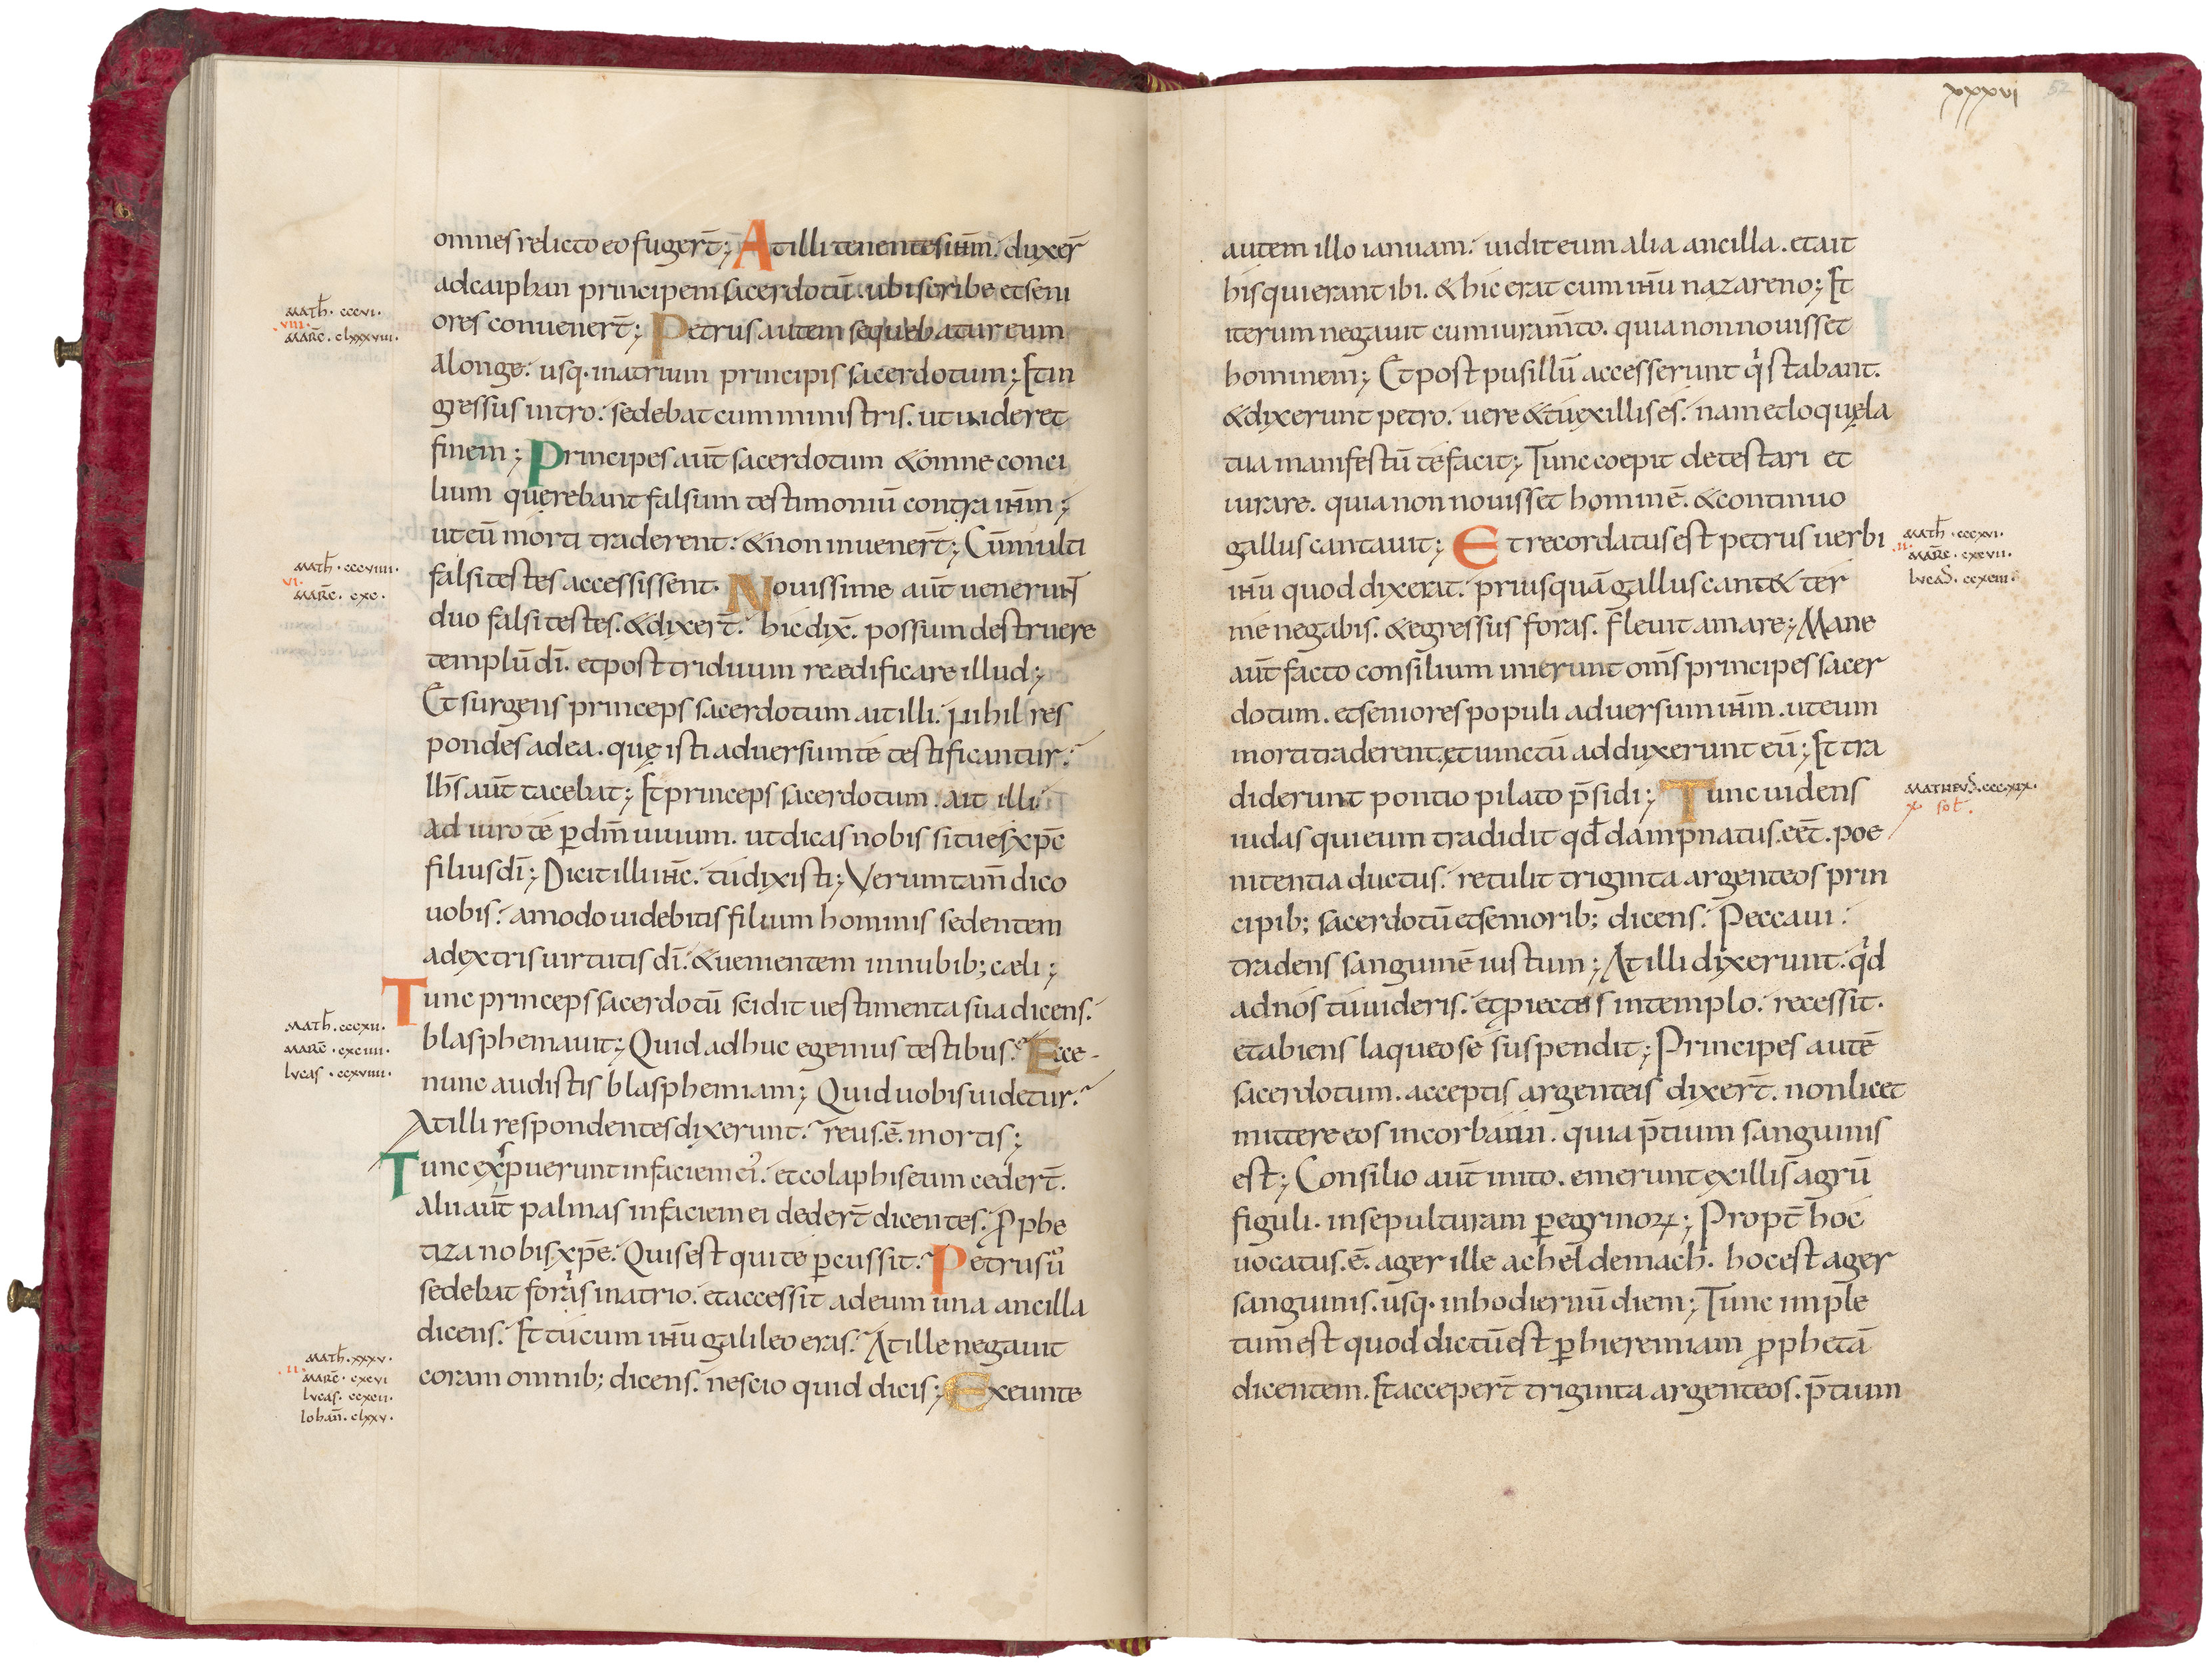 omnes relicto eo fugert̄; At illi tenentes ihm̄. duxer̄
ad caiphan principem sacerdotū. ubi scribe et seni
math̄. cccvi.
viii.
marc̄. clxxxviii.
ores conuenert̄; Petrus autem sequebatur eum
alonge. usq. in atrium principis sacerdotum; Et in
gressus intro. sedebat cum ministris. ut uideret
finem; Principes aut̄ sacerdotum & omne conci
lium quęrebant falsum testimoniū contra ihm̄;
ut eū morti traderent. & non inuenert̄; Cū multi
math̄. cccviiii.
vi.
marc̄. cxc.
falsi testes accessissent. Nouissime aut̄ uenerunt
duo falsi testes. & dixert̄. hic dix̄. possum destruere
templū dī. et post triduum reaedificare illud;
Et surgens princeps sacerdotum ait illi. Nihil res
pondes ad ea. quę isti aduersum te testificantur.
Ihs̄ aut̄ tacebat; Et princeps sacerdotum. ait illi
Adiuro te p̄ dm̄ uiuum. ut dicas nobis si tu es xp̄c
filius dī; Dicit illi ihc̄. tu dixisti; Veruntam̄ dico
uobis. amodo uidebitis filium hominis sedentem
a dextris uirtutis dī. & uenientem in nubib; cæli;
Tunc princeps sacerdotū scidit uestimenta sua dicens.
math̄. cccxii.
marc̄. cxciiii.
lucas. ccxviiii.
blasphemauit; Quid adhuc egemus testibus. Ecce
nunc audistis blasphemiam; Quid uobis uidetur.
At illi respondentes dixerunt. reus. ē. mortis;
Tunc exspuerunt in faciem ei'. et colaphis eum cedert̄.
alii aut̄ palmas in faciem ei dedert̄ dicentes. Prophe
tiza nobis xp̄e. Quis est qui te p̄cussit. Petrus u̇o
sedebat foris in atrio. et accessit ad eum una ancilla
dicens. Et tu cum ihū galileo eras. At ille negauit
math̄. xxxv.
ii.
marc̄. cxcvi
lucas. ccxcii.
Iohan̄. clxxv.
coram omnib; dicens. nescio quid dicis; Exeunte
xxxvi
52
autem illo ianuam. uidit eum alia ancilla. et ait
his qui erant ibi. & hic erat cum ihū nazareno; Et
iterum negauit cum iuram̄to. quia non nouisset
hominem; Et post pusillū accesserunt qi stabant.
& dixerunt petro. uere & tu ex illis es. nam et loquęla
tua manifestū te facit; Tunc coepit detestari et
iurare. quia non nouisset hominē. & continuo
gallus cantauit; Et recordatus est petrus uerbi
math̄. cccxvi.
ii.
marc̄. cxcvii.
lucas. ccxciii.
ihū quod dixerat. priusquā gallus cant& ter
me negabis. & egressus foras. fleuit amare; Mane
aut̄ facto consilium inierunt om̄s principes sacer
dotum. et seniores populi aduersum ihm̄. ut eum
morti traderent. et uinctū adduxerunt eū; Et tra
diderunt pontio pilato p̄sidi; Tunc uidens
matheus. ccc.xix.
x sol̄.
iudas qui eum tradidit qd̄ dampnatus. eet̄. poe
nitentia ductus. retulit triginta argenteos prin
cipib; sacerdotū et seniorib; dicens. Peccaui.
tradens sanguinē iustum; At illi dixerunt. qid
ad nos tu uideris. et proiectis in templo. recessit.
et abiens laqueo se suspendit; Principes autē
sacerdotum. acceptis argenteis dixert̄. non licet
mittere eos in corbanan. quia p̄tium sanguinis
est; Consilio aut̄ inito. emerunt ex illis agrū
figuli. in sepulturam p̄egrinoꝝ; Propt̄ hoc
uocatus. ē. ager ille acheldemach. hoc est ager
sanguinis. usq. in hodiernū diem; Tunc imple
tum est quod dictū est p̄ hieremiam prophetā
dicentem. Et accepert̄ triginta argenteos. p̄tium